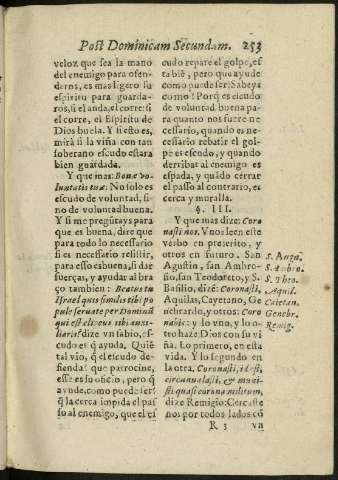 Post Dominicam Secundam. 253
veloz que sea la mano
del enemigo para ofen-
deros, es mas ligero su
espiritu para guarda-
ros, si el anda, el corre: si
el corre, el Espiritu de
Dios buela. Y si esto es,
mirà si la viña con tan
soberano escudo estarà
bien guardada.
Y que mas: Bonæ vo-
luntatis tuæ. No solo es
escudo de voluntad, si-
no de voluntad buena.
Y si me preguntays para
que es buena, dire que
para todo lo necessario
si es necessario resistir,
para esso es buena, si dar
fuerças, y ayudar al bra
ço tambien: Beatus tu
Israel quis similis tibi po
pule qui saluaris in Domino
auxi-
liaris? dize vn sabio, es-
cudo es q̃ ayuda. Quiẽ
tal vio, q̃ el escudo de-
fienda? que patrocine,
esse es su oficio, pero q̃
ayude, como puede ser?
q̃ la cerca impida el pas
so al enemigo, que el es
cudo repare el golpe, es
tà biẽ, pero que ayude
como puede ser? Sabeys
como? Porq̃ es escudo
de voluntad buena pa-
ra quanto nos fuere ne
cessario, quando es ne-
cessario rebatir el gol-
pe es escudo, y quando
derribar al enemigo es
espada, y quãdo cerrar
el passo al contrario, es
cerca y muralla.
§. III.
Y que mas dize: Coro
nasti nos. Vnos leen este
verbo en preterito, y
otros en futuro. San
Agustin, san Ambro-
sio, san Teodoreto, y S.
Basilio, dizẽ: Coronasti,
Aquilas, Cayetano, Ge
nebrardo, y otros: Coro
nabis: y lo vno, y lo o-
tro hazo Dios con su vi
ña. Lo primero, en esta
vida. Y lo segundo en
la otra. Coronasti, id est,
circunualasti, & muni-
sti quasi corona militum,
dize Remigio: Cercaste
nos por todos lados cõ
S. Augu.
S. Ambro.
S. Theo.
Aquil.
Caietan.
Genebr.
Remig.
R 3 vn